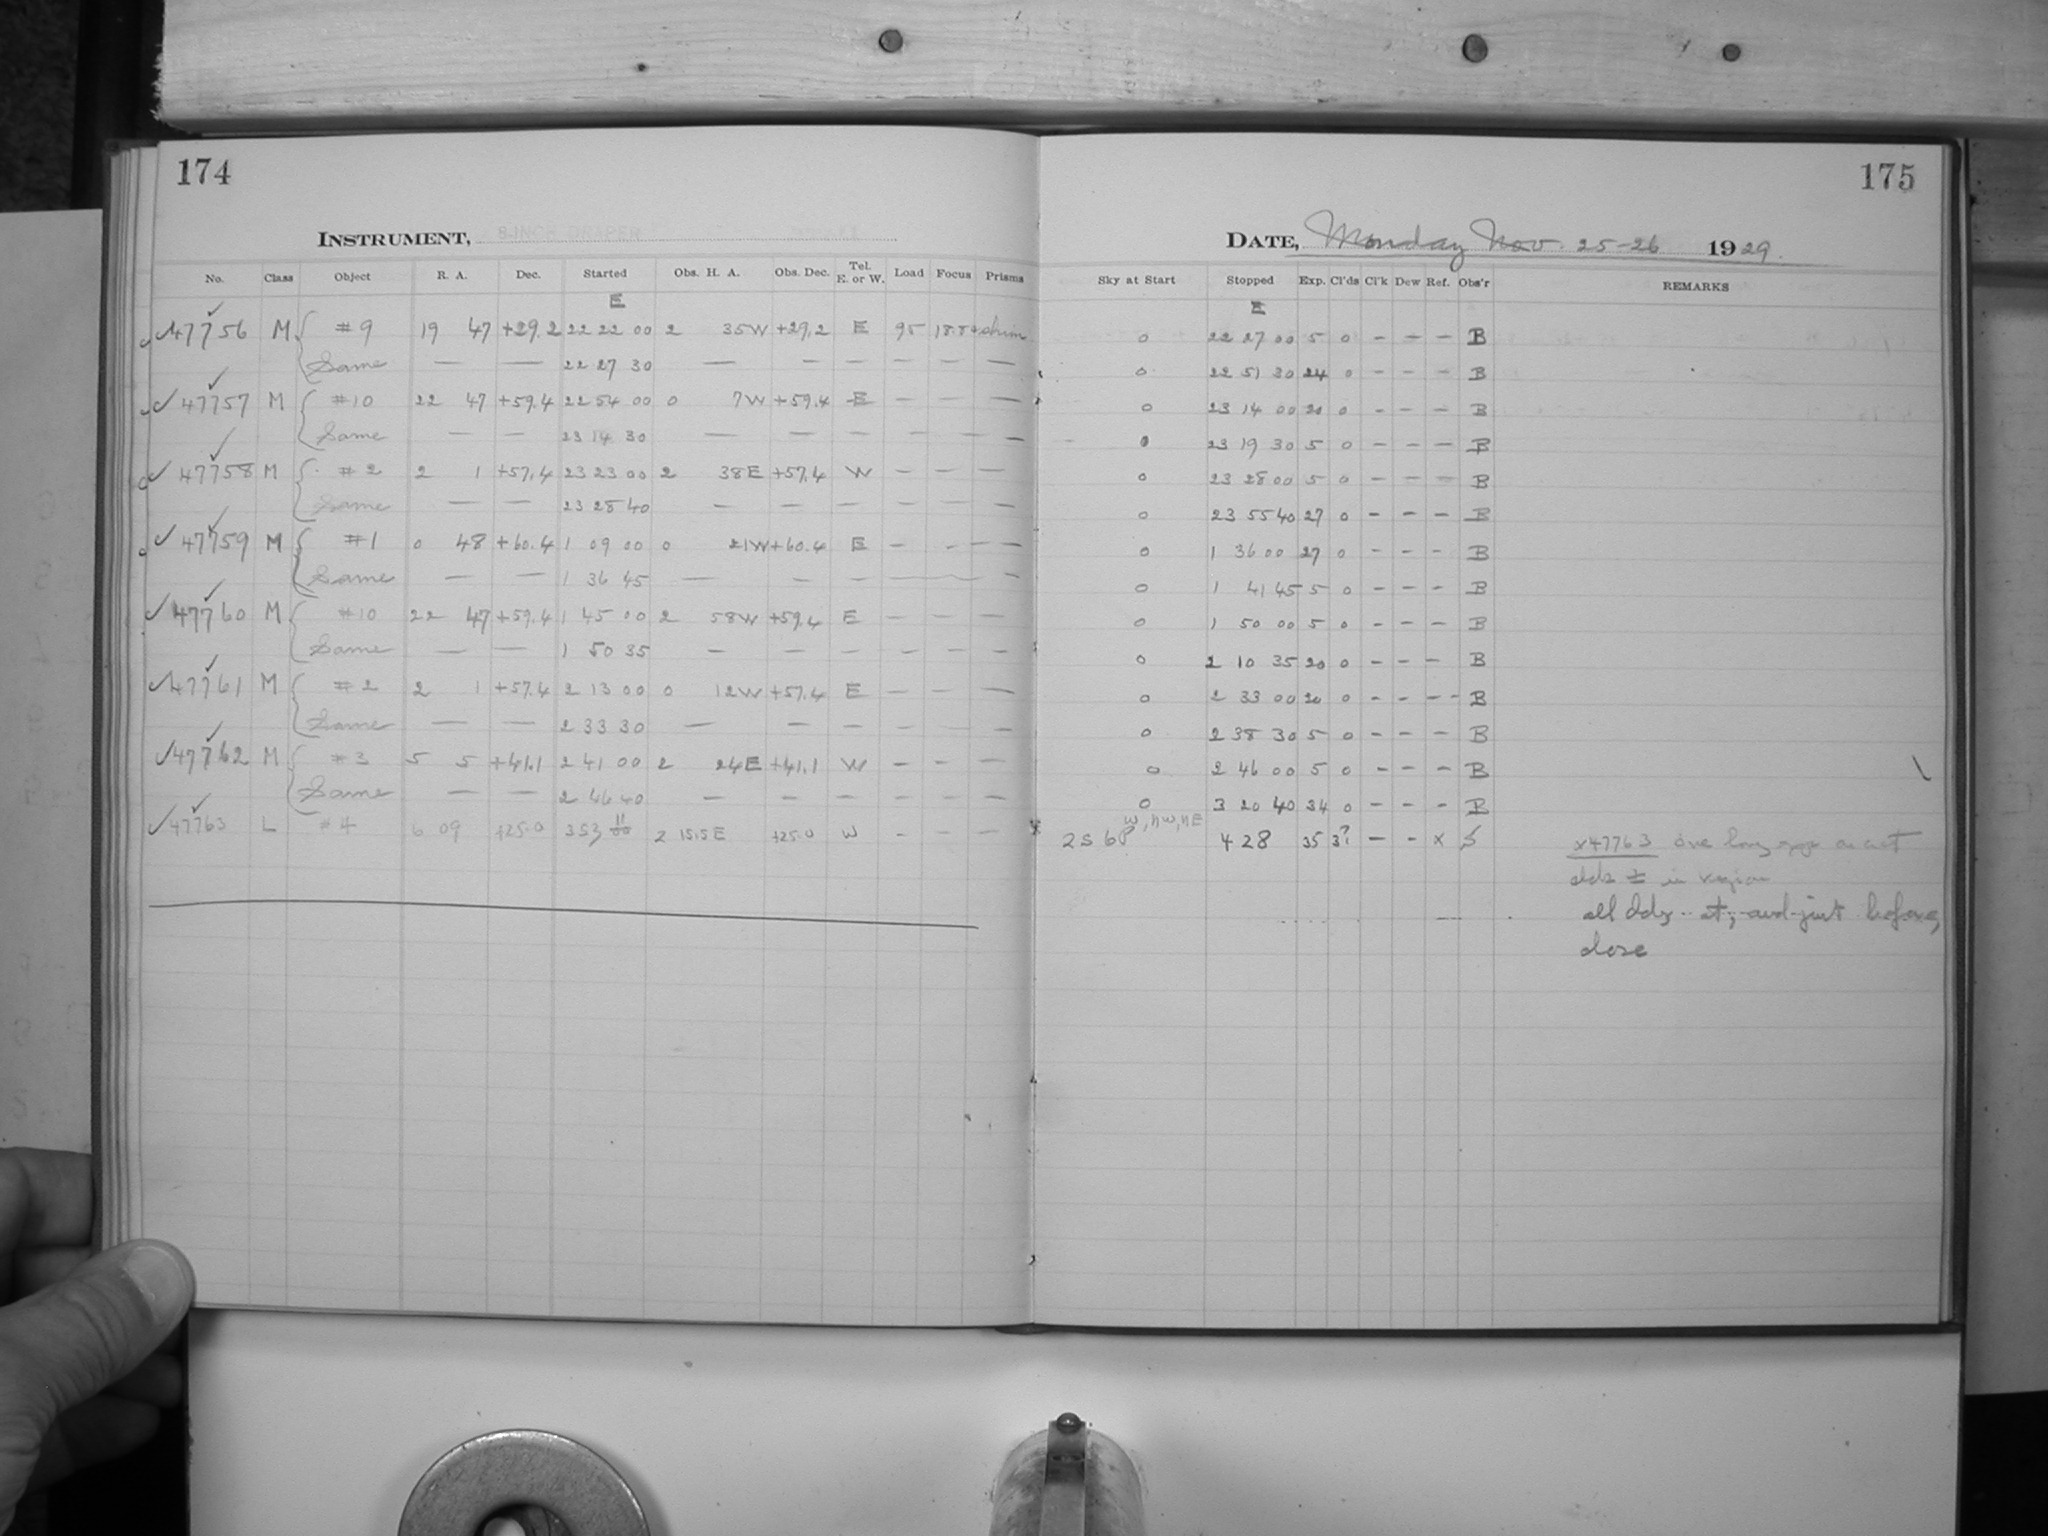 174
INSTRUMENT, 8-INCH DRAPER
No. Class Object R. A. Dec. Started Obs. H. A. Obs. Dec. Tel. E. or W. Load Focus Prisms
E
47756 M #9 19 47 +29.2 22 22 00 2 35W +29.2 E 95 18.8
Same — — 22 27 30 — — — — — —
47757 M #10 22 47 +59.4 22 54 00 0 7W +59.4 E — — —
Same — — 23 14 30 — — — — — —
47758 M #2 2 1 +57.4 23 23 00 2 38E +57.4 W — — —
Same — — 23 28 40 — — — — — —
47759 M #1 0 48 +60.4 1 09 00 0 21W +60.4 E — — —
Same — — 1 36 45 — — — — — —
47760 M #10 22 47 +59.4 1 45 00 2 58W +59.4 E — — —
Same — — 1 50 35 — — — — — —
47761 M #2 2 1 +57.4 2 13 00 0 12W +57.4 E — — —
Same — — 2 33 30 — — — — — —
47762 M #3 5 5 +41.1 2 41 00 2 24E +41.1 W — — —
Same — — 2 46 40 — — — — — —
47763 L #4 6 09 +25.0 3 53 2 15.5E +25.0 W — — —
175
DATE, Monday Nov. 25-26 1929.
Sky at Start Stopped Exp. Cl'ds Cl'k Dew Ref. Obs'r REMARKS
E
0 22 27 00 5 0 — — — B
0 22 51 30 24 0 — — — B
0 23 14 00 20 0 — — — B
0 23 19 30 5 0 — — — B
0 23 28 00 5 0 — — — B
0 23 55 40 27 0 — — — B
0 1 36 00 27 0 — — — B
0 1 41 45 5 0 — — — B
0 1 50 00 5 0 — — — B
0 2 10 35 20 0 — — — B
0 2 33 00 20 0 — — — B
0 2 38 30 5 0 — — — B
0 2 46 00 5 0 — — — B
0 3 20 40 34 0 — — — B
W, NW, NE
2S 6P 4 28 35 3? — — x S x47763 one long
in region
all cldy at, and just before,
close